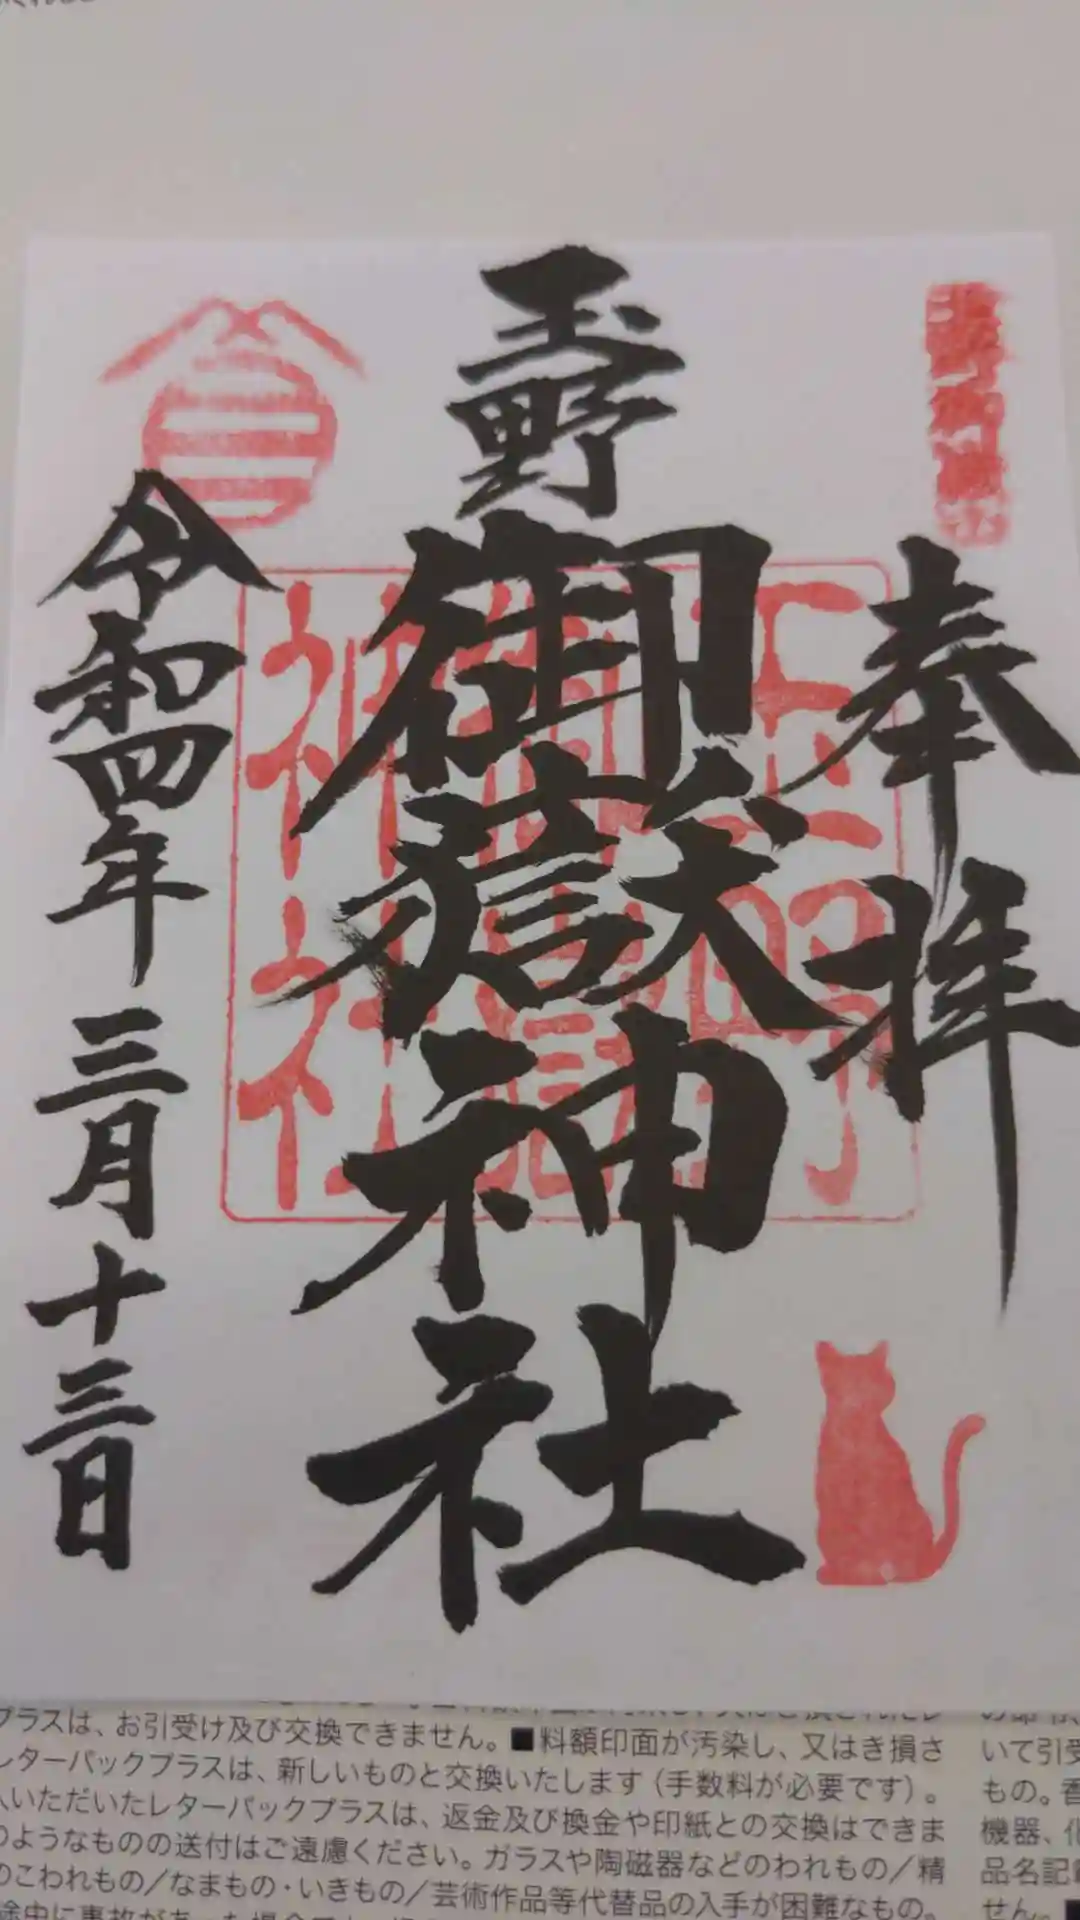 奉拝
玉野
御嶽神社
令和四年三月十三日
玉野御嶽神社
プラスは、お引受け及び交換できません。■料額印面が汚染し、又はき損さ
レターパックプラスは、新しいものと交換いたします（手数料が必要です）。
いただいたレターパックプラスは、返金及び換金や印紙との交換はできま
のようなものの送付はご遠慮ください。ガラスや陶磁器などのわれもの／精
のこわれもの／なまもの・いきもの／芸術作品等代替品の入手が困難なもの。
いて引受
もの。
機器、
品名記載
せん。■